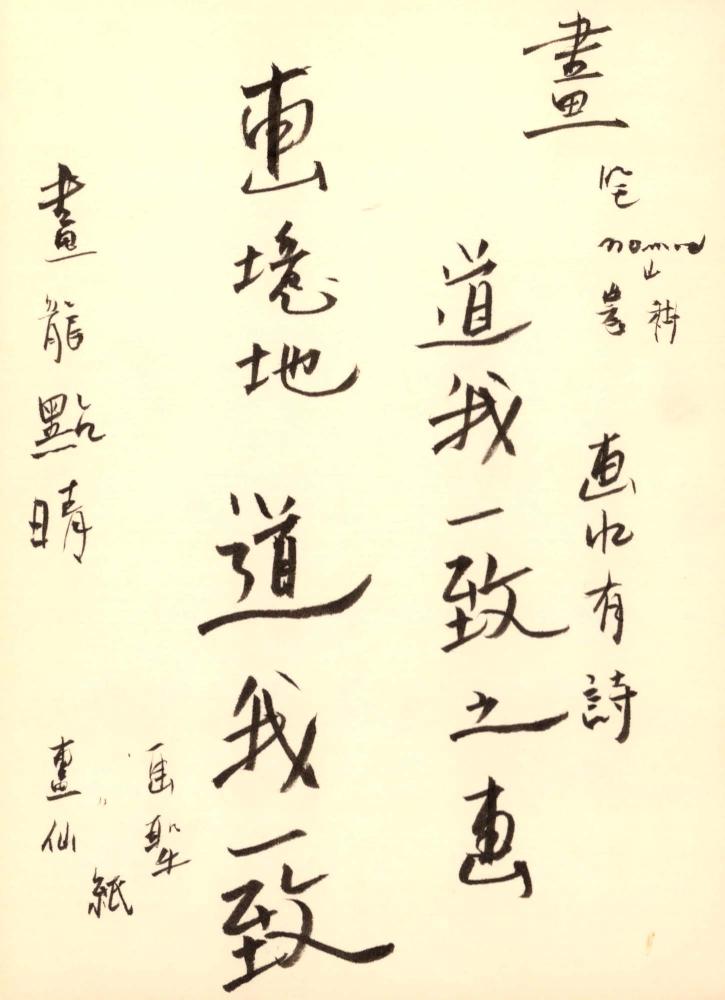 畫
画中有詩
道我一致之画
画境地 道我一致
畫龍點晴
画聖
畫仙
紙